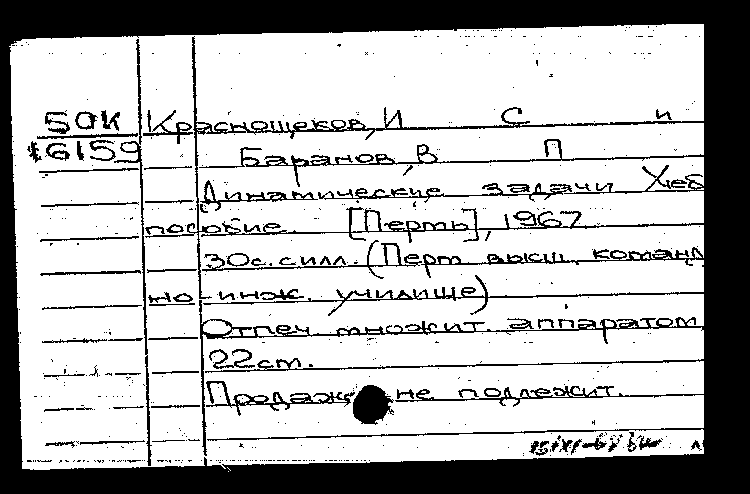 50К Краснощеков, И С и
16159 Баранов, В П
Динамические задачи Хлеб
пособие. [Перть], 1967
30с. силл. (Перм высш. команд
но-инж. училище)
Отпеч множит. аппаратом,
22см.
Продаже не подлежит.